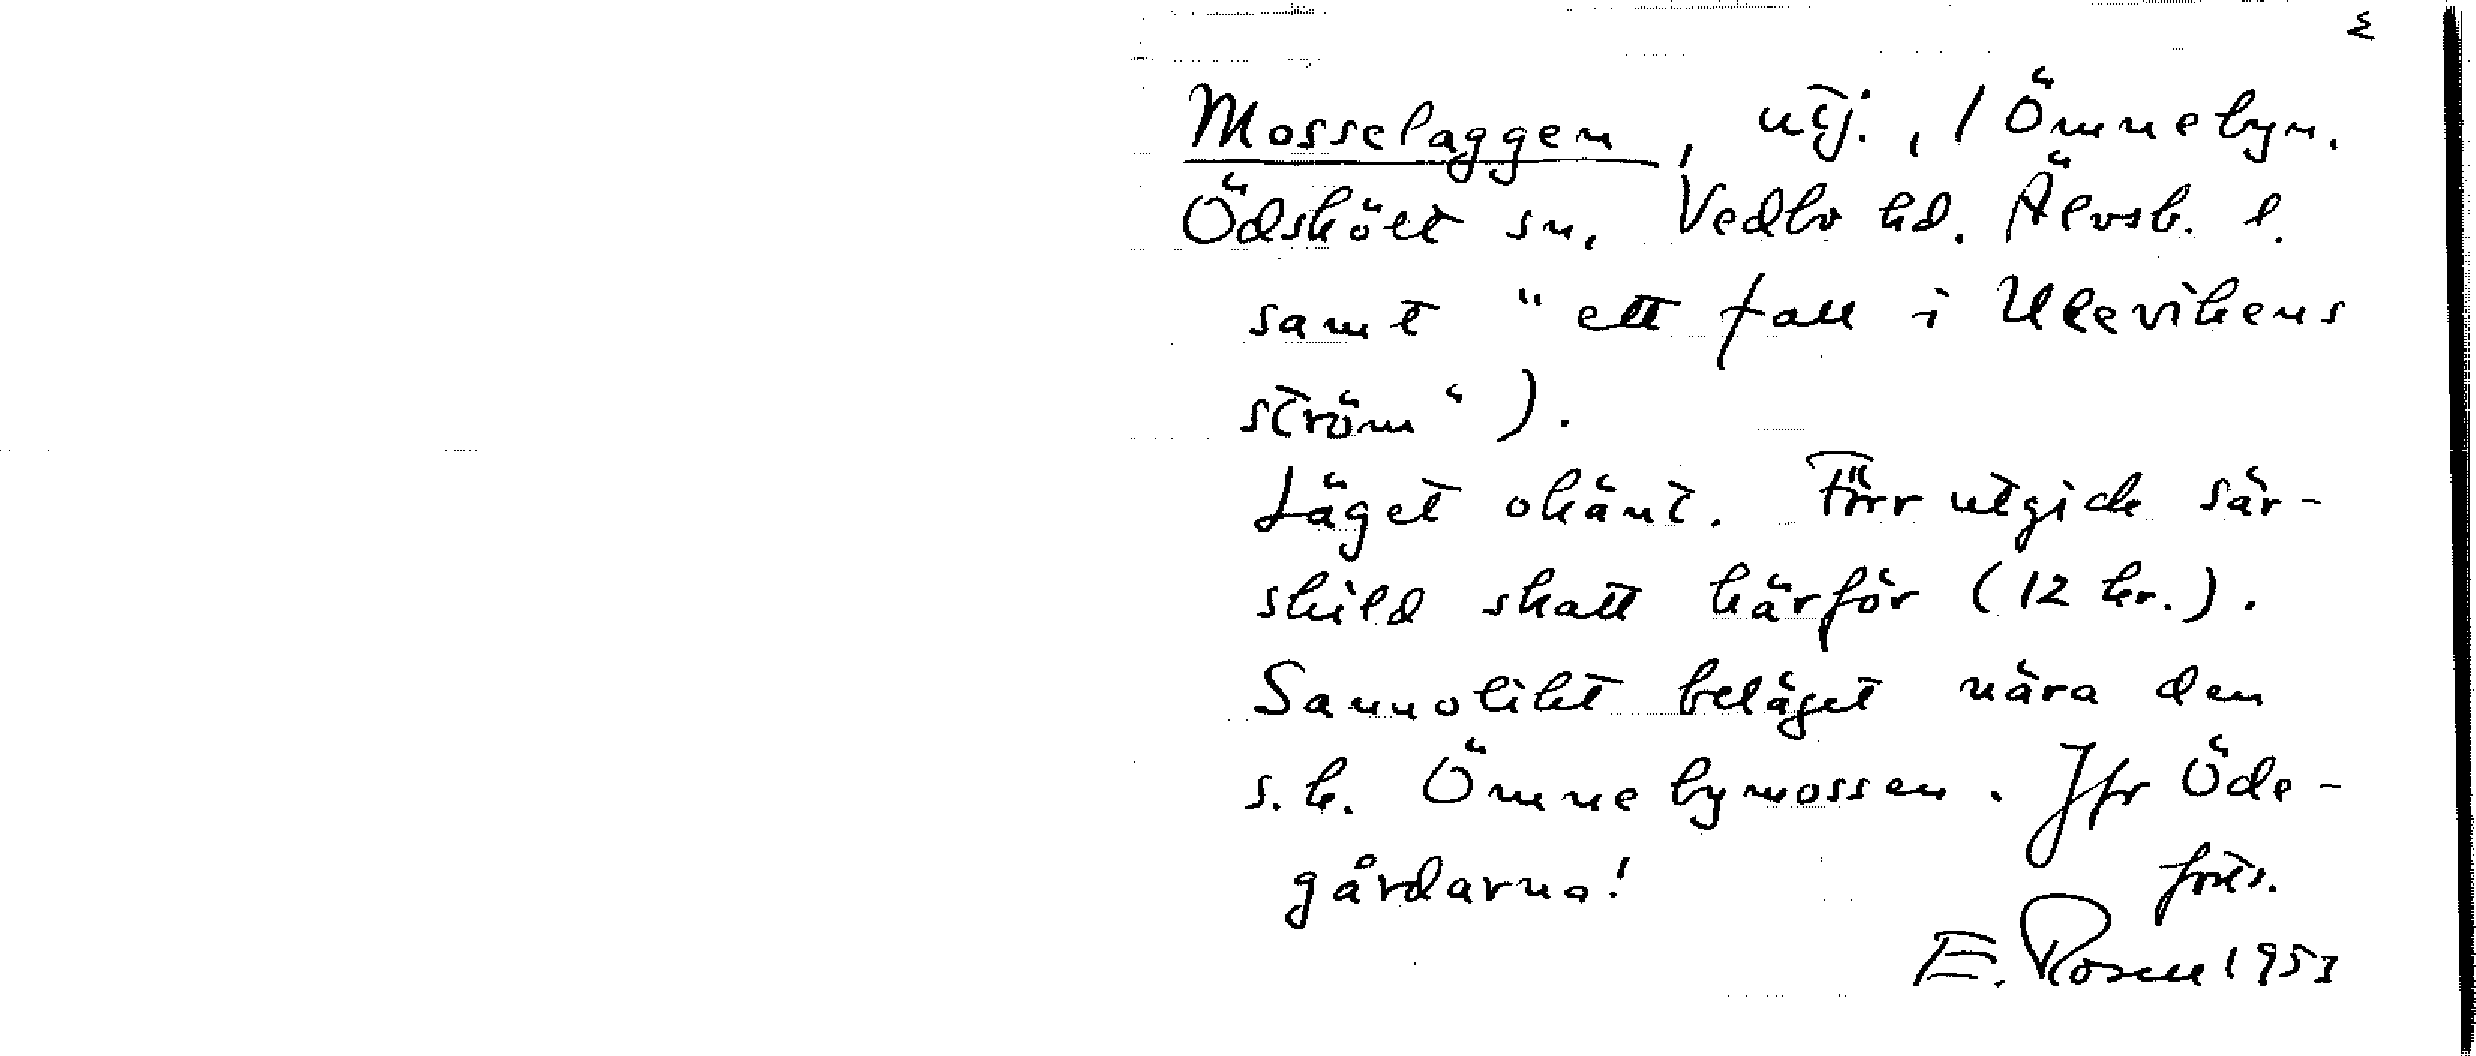 Mosselaggen, utj., / Ömnebyn.
Ödskölt sn, Vedbo hd. Älvsb. l.
samt "ett fall i Ulevikens
ström").
Läget okänt. Förr utgick sär-
skild skatt härför (12 kr.).
Sannolikt beläget nära den
s.k. Ömnebymossen. Jfr Öde-
gårdarna!
forts.
E. Rosell 1953